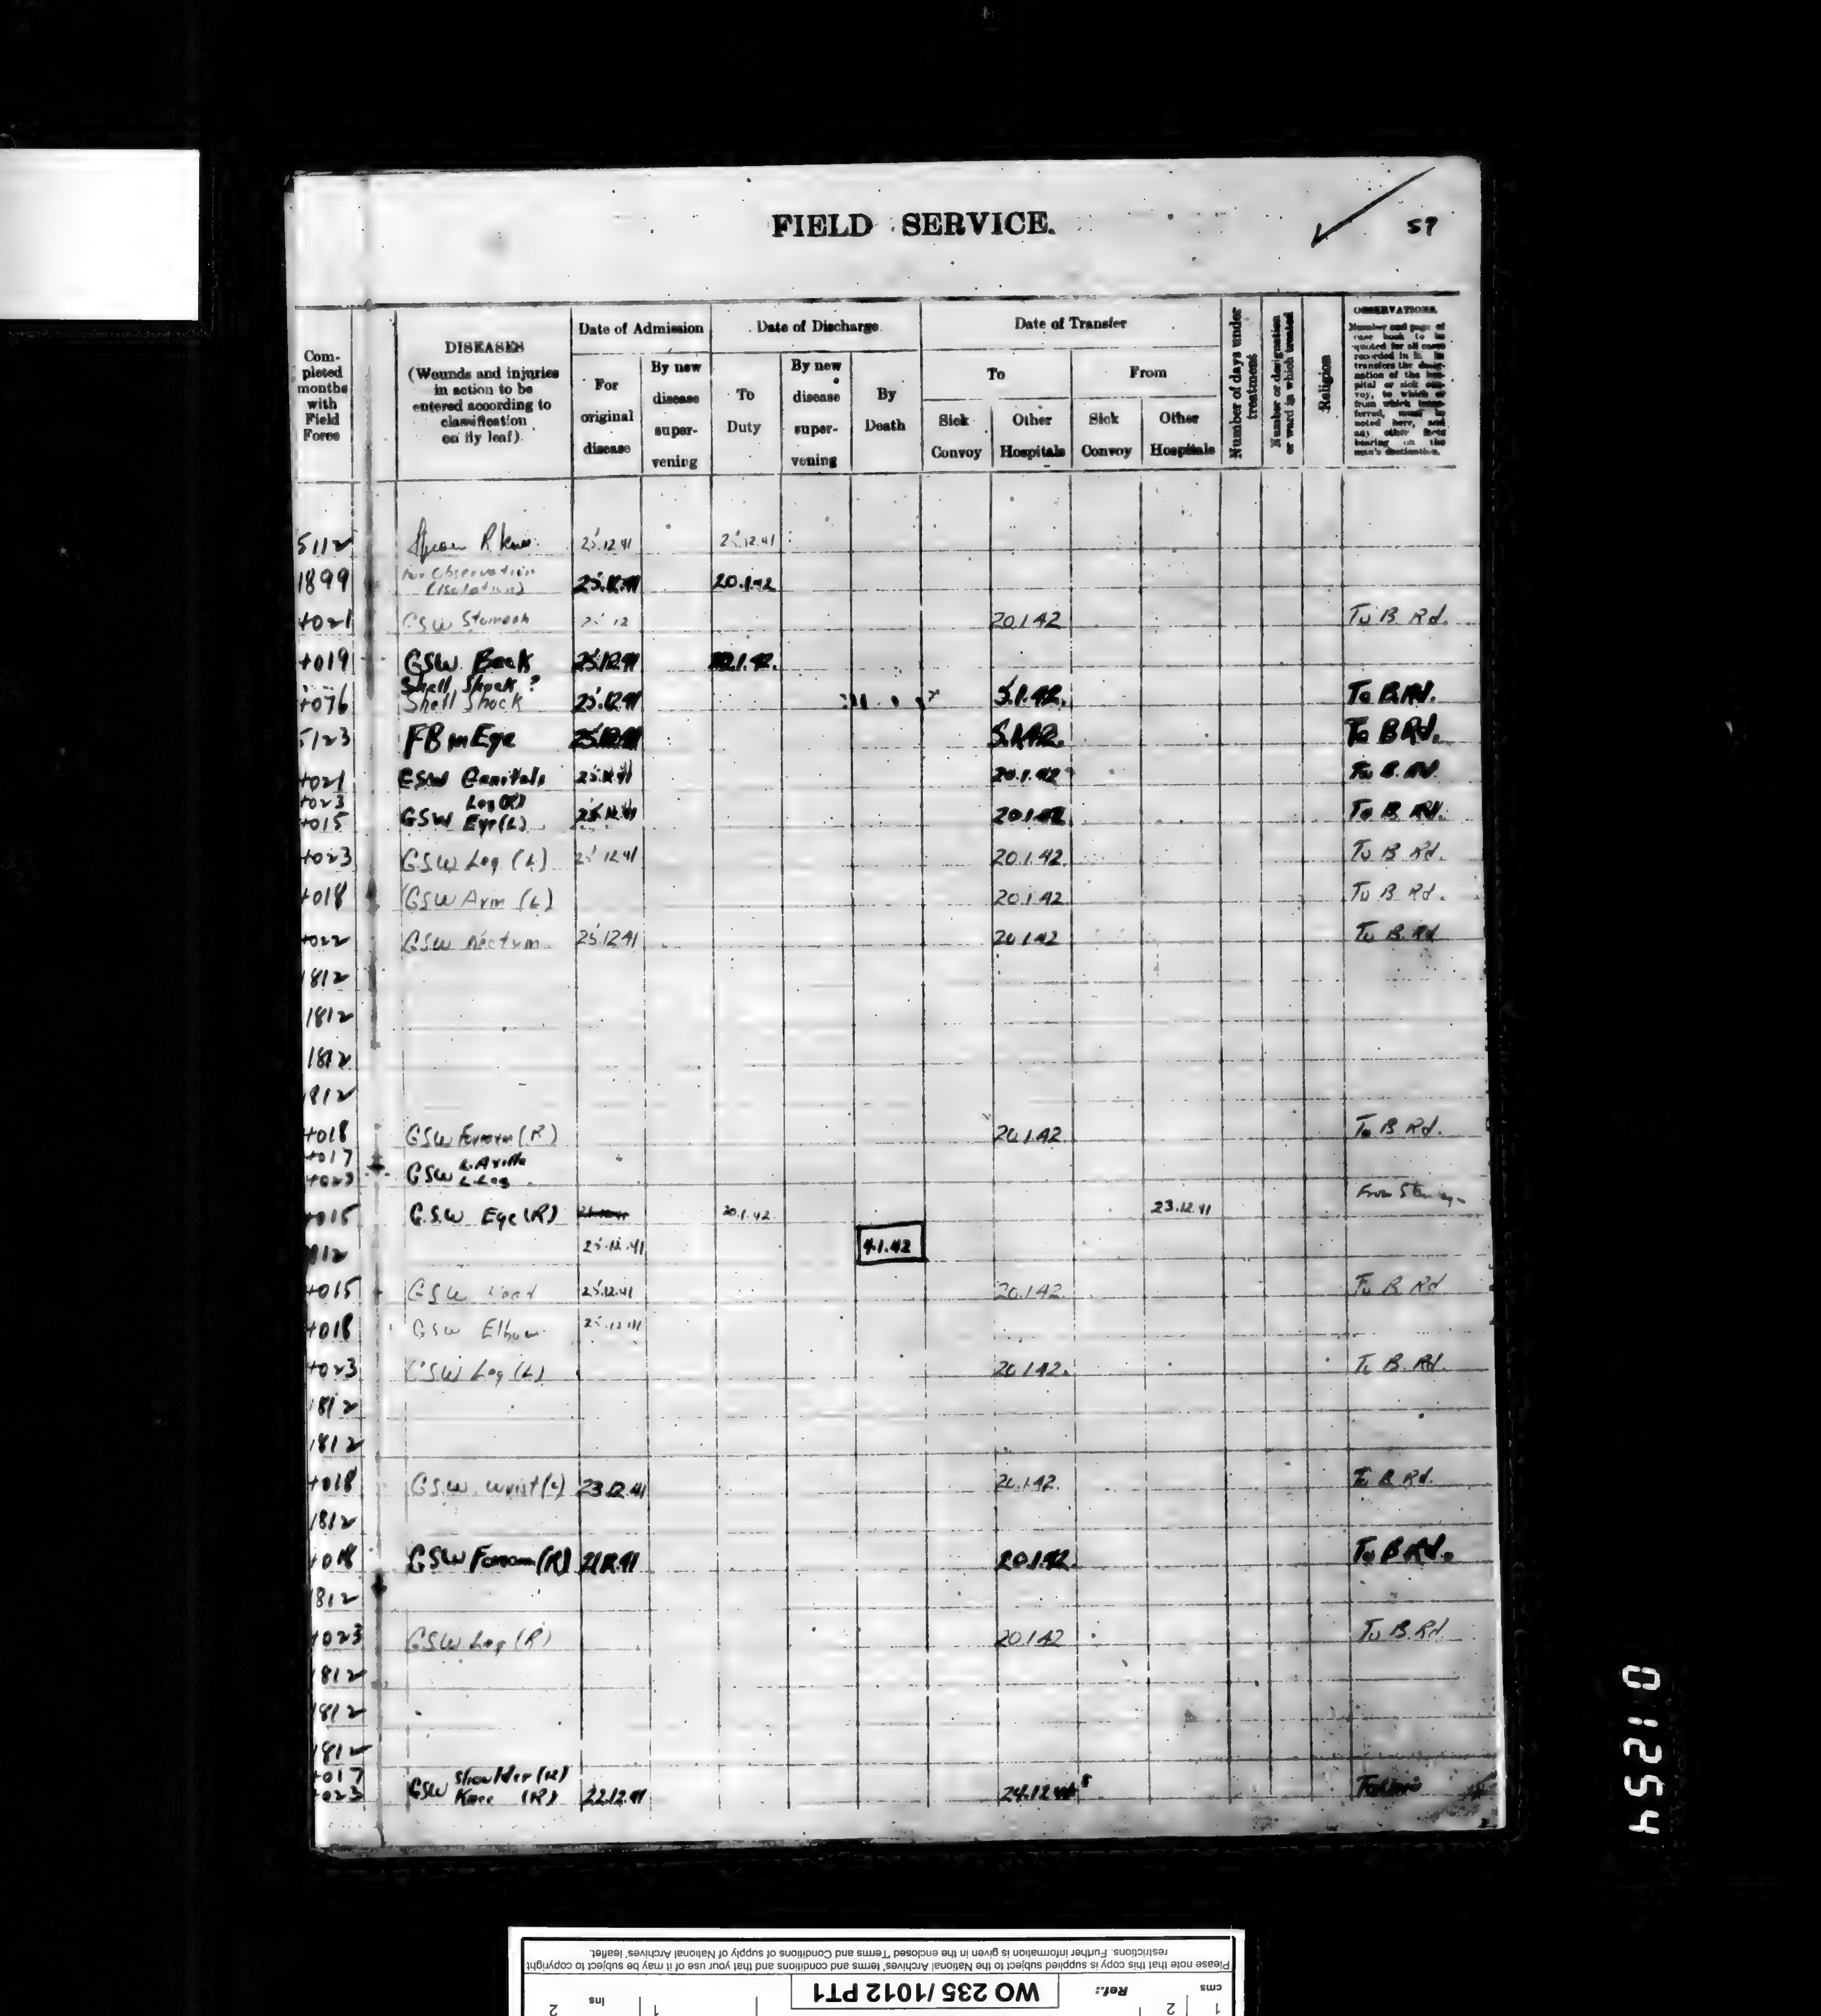 FIELD SERVICE.
57
Completed months with Field Force
DISEASES
(Wounds and injuries in action to be entered according to classification on fly leaf).
Date of Admission
For original disease
By new disease supervening
Date of Discharge
To Duty
By new disease supervening
By Death
Date of Transfer
To
From
Sick Convoy
Other Hospitals
Sick Convoy
Other Hospitals
Number of days under treatment
Number or designation or ward in which treated
Religion
OBSERVATIONS.
Number and page of case book to be quoted for all cases recorded in it. In transfers the designation of the hospital or sick convoy, to which or from which transferred, must be noted here, and any other facts bearing on the man's destination.
5112 R Knee 25.12.41 25.12.41
1899 For Observation (Isolation) 25.12.41 20.1.42
4021 GSW Stomach 25 12 20.1.42 To B. Rd.
4019 GSW Back 25.12.41 1.42.
4076 Shell Shock ? Shell Shock 25.12.41 5.1.42. To B.Rd.
5123 FB in Eye 25.12.41 5.1.42. To B Rd.
4021 GSW Genitals 25.12.41 20.1.42 To B. Rd.
4023 Leg (R)
4015 GSW Eye (L) 25.12.41 20.1.42 To B Rd.
4023 GSW Leg (L) 25 12 41 20.1.42. To B Rd.
4018 GSW Arm (L) 20.1.42 To B Rd.
4022 GSW Rectum 25.12.41 20.1.42 To B. Rd
1812
1812
1812
1812
4018 GSW Forearm (R) 20.1.42. To B Rd.
4017 L. Axilla
4023 GSW L. Leg
4015 G.S.W Eye (R) 20.1.42 23.12.41 From Stanley
1812 25.12.41 4.1.42
4015 GSW Head 25.12.41 20.1.42 To B Rd
4018 GSW Elbow 25.12.41
4023 GSW Leg (L) 20.1.42. To B. Rd.
1812
1812
4018 G.S.W. Wrist (L) 23.12.41 20.1.42. To B Rd.
1812
4018 GSW Forearm (R) 21.12.41 20.1.42. To B Rd.
1812
4023 GSW Leg (R) 20.1.42 To B. Rd
1812
1812
1812
4017 Shoulder (R)
4023 GSW Knee (R) 22.12.41 24.12.41
01254
Please note that this copy is supplied subject to the National Archives' terms and conditions and that your use of it may be subject to copyright
restrictions. Further information is given in the enclosed 'Terms and Conditions of supply of National Archives' leaflet.
cms 1 2
Ref.: WO 235/1012 PT1
ins 1 2